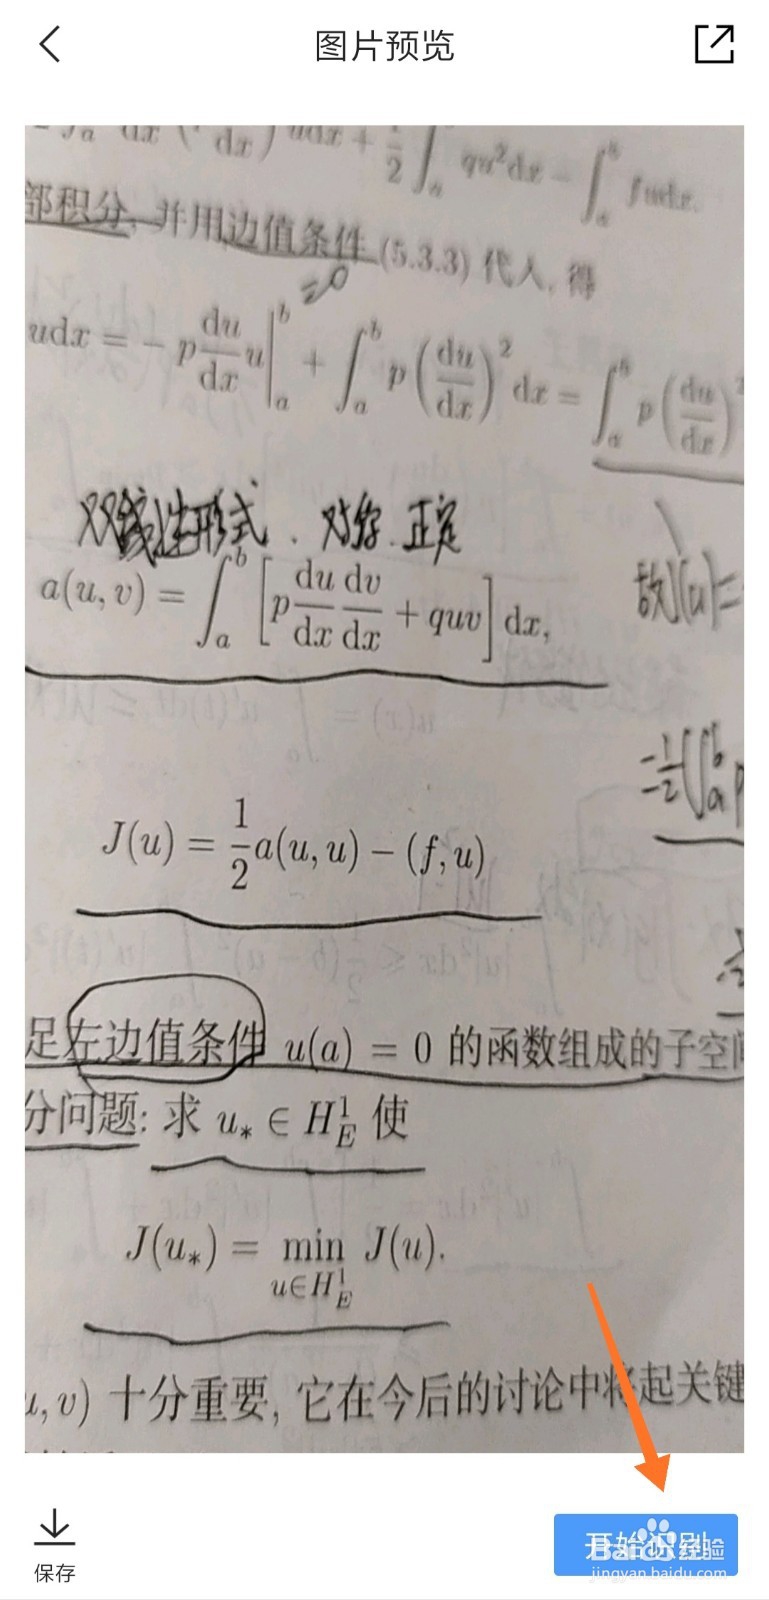 图片预览
qu²dx −
部积分, 并用边值条件 (5.3.3) 代入, 得
=0
udx = − p du/dx u |_a^b + ∫_a^b p (du/dx)² dx = ∫_a^b p (du/dx)²
双线性形式、对称、正定
a(u, v) = ∫_a^b [p du/dx dv/dx + quv] dx,
故J(u)=
=1/2(∫_a^b p
J(u) = 1/2 a(u, u) − (f, u)
足左边值条件 u(a) = 0 的函数组成的子空间
分问题: 求 u_* ∈ H_E^1 使
J(u_*) = min_{u∈H_E^1} J(u).
u, v) 十分重要, 它在今后的讨论中将起关键
保存
开始识别
Baidu经验
jingyan.baidu.com